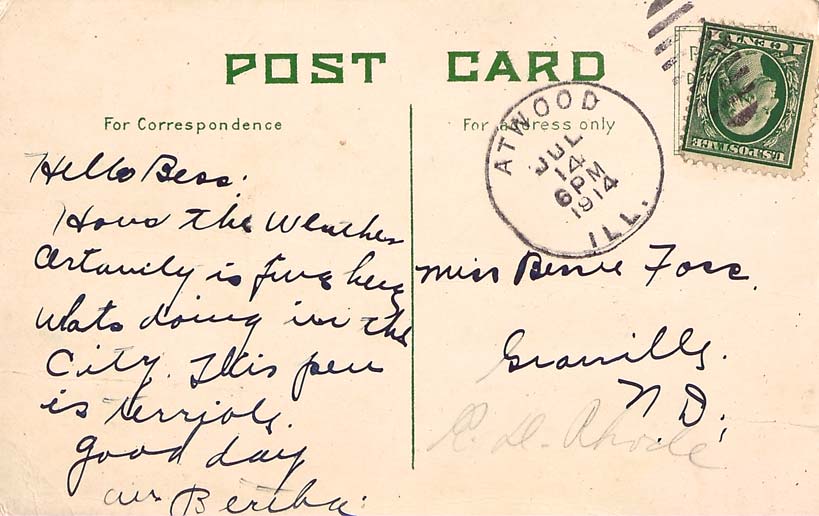 POST CARD
For Correspondence
For address only
1 CENT 1
U.S. POSTAGE
ATWOOD
JUL
14
6 PM
1914
ILL.
Hello Bess:
Hows the Weather
is fine here
Whats doing in the
City. This pen
is terrible.
Good day
Bertha.
Miss Bessie Foss.
Granville.
N. D.